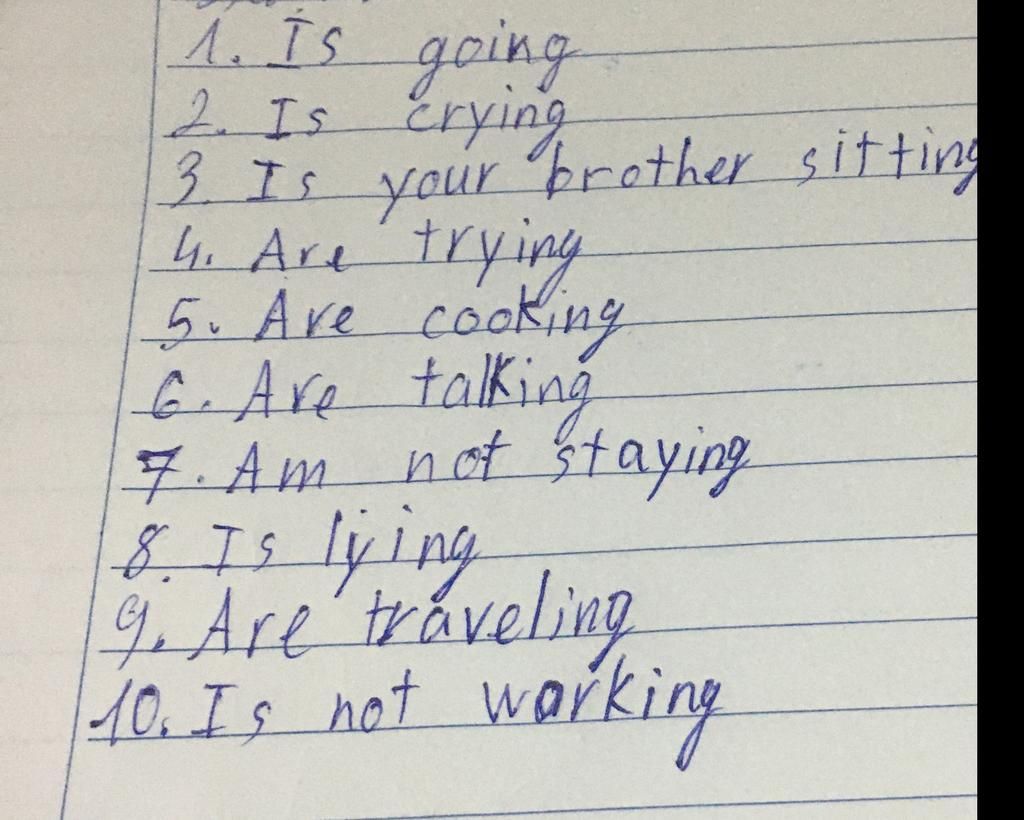 1. Is going
2. Is crying
3. Is your brother sitting
4. Are trying
5. Are cooking
6. Are talking
7. Am not staying
8. Is lying
9. Are traveling
10. Is not working